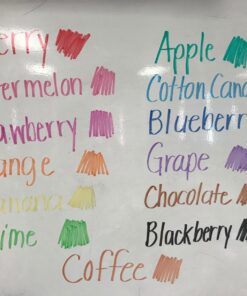 erry
ermelon
awberry
ange
anana
ime
Apple
Cotton Cand
Blueberr
Grape
Chocolate
Blackberry
Coffee